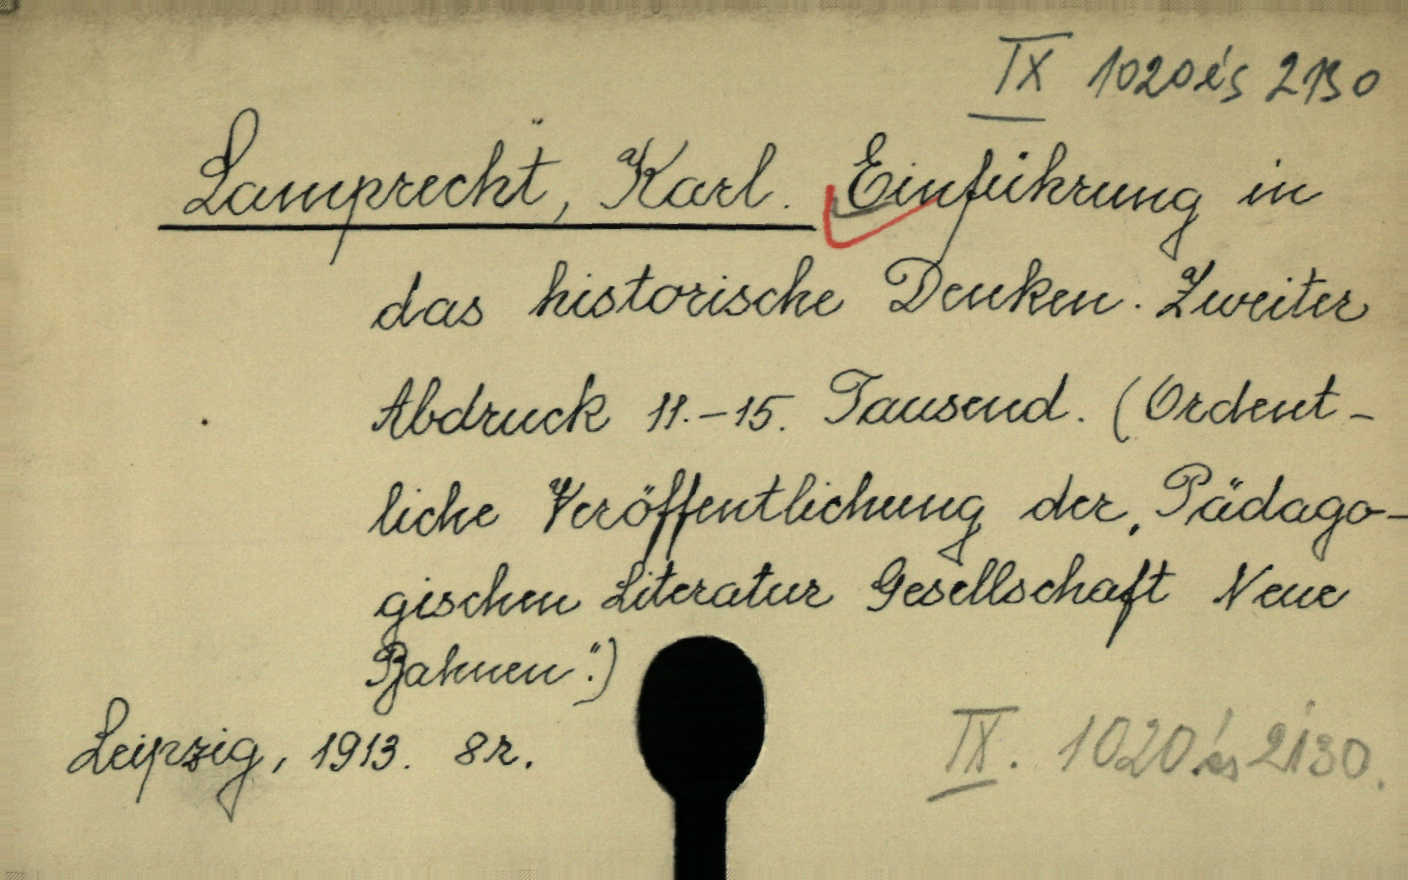 IX 1020 és 2130
Lamprecht, Karl. Einführung in
das historische Denken. Zweiter
Abdruck 11.–15. Tausend. (Ordent-
liche Veröffentlichung der „Pädago-
gischen Literatur Gesellschaft Neue
Bahnen".)
Leipzig, 1913. 8r.
IX. 1020. és 2130.